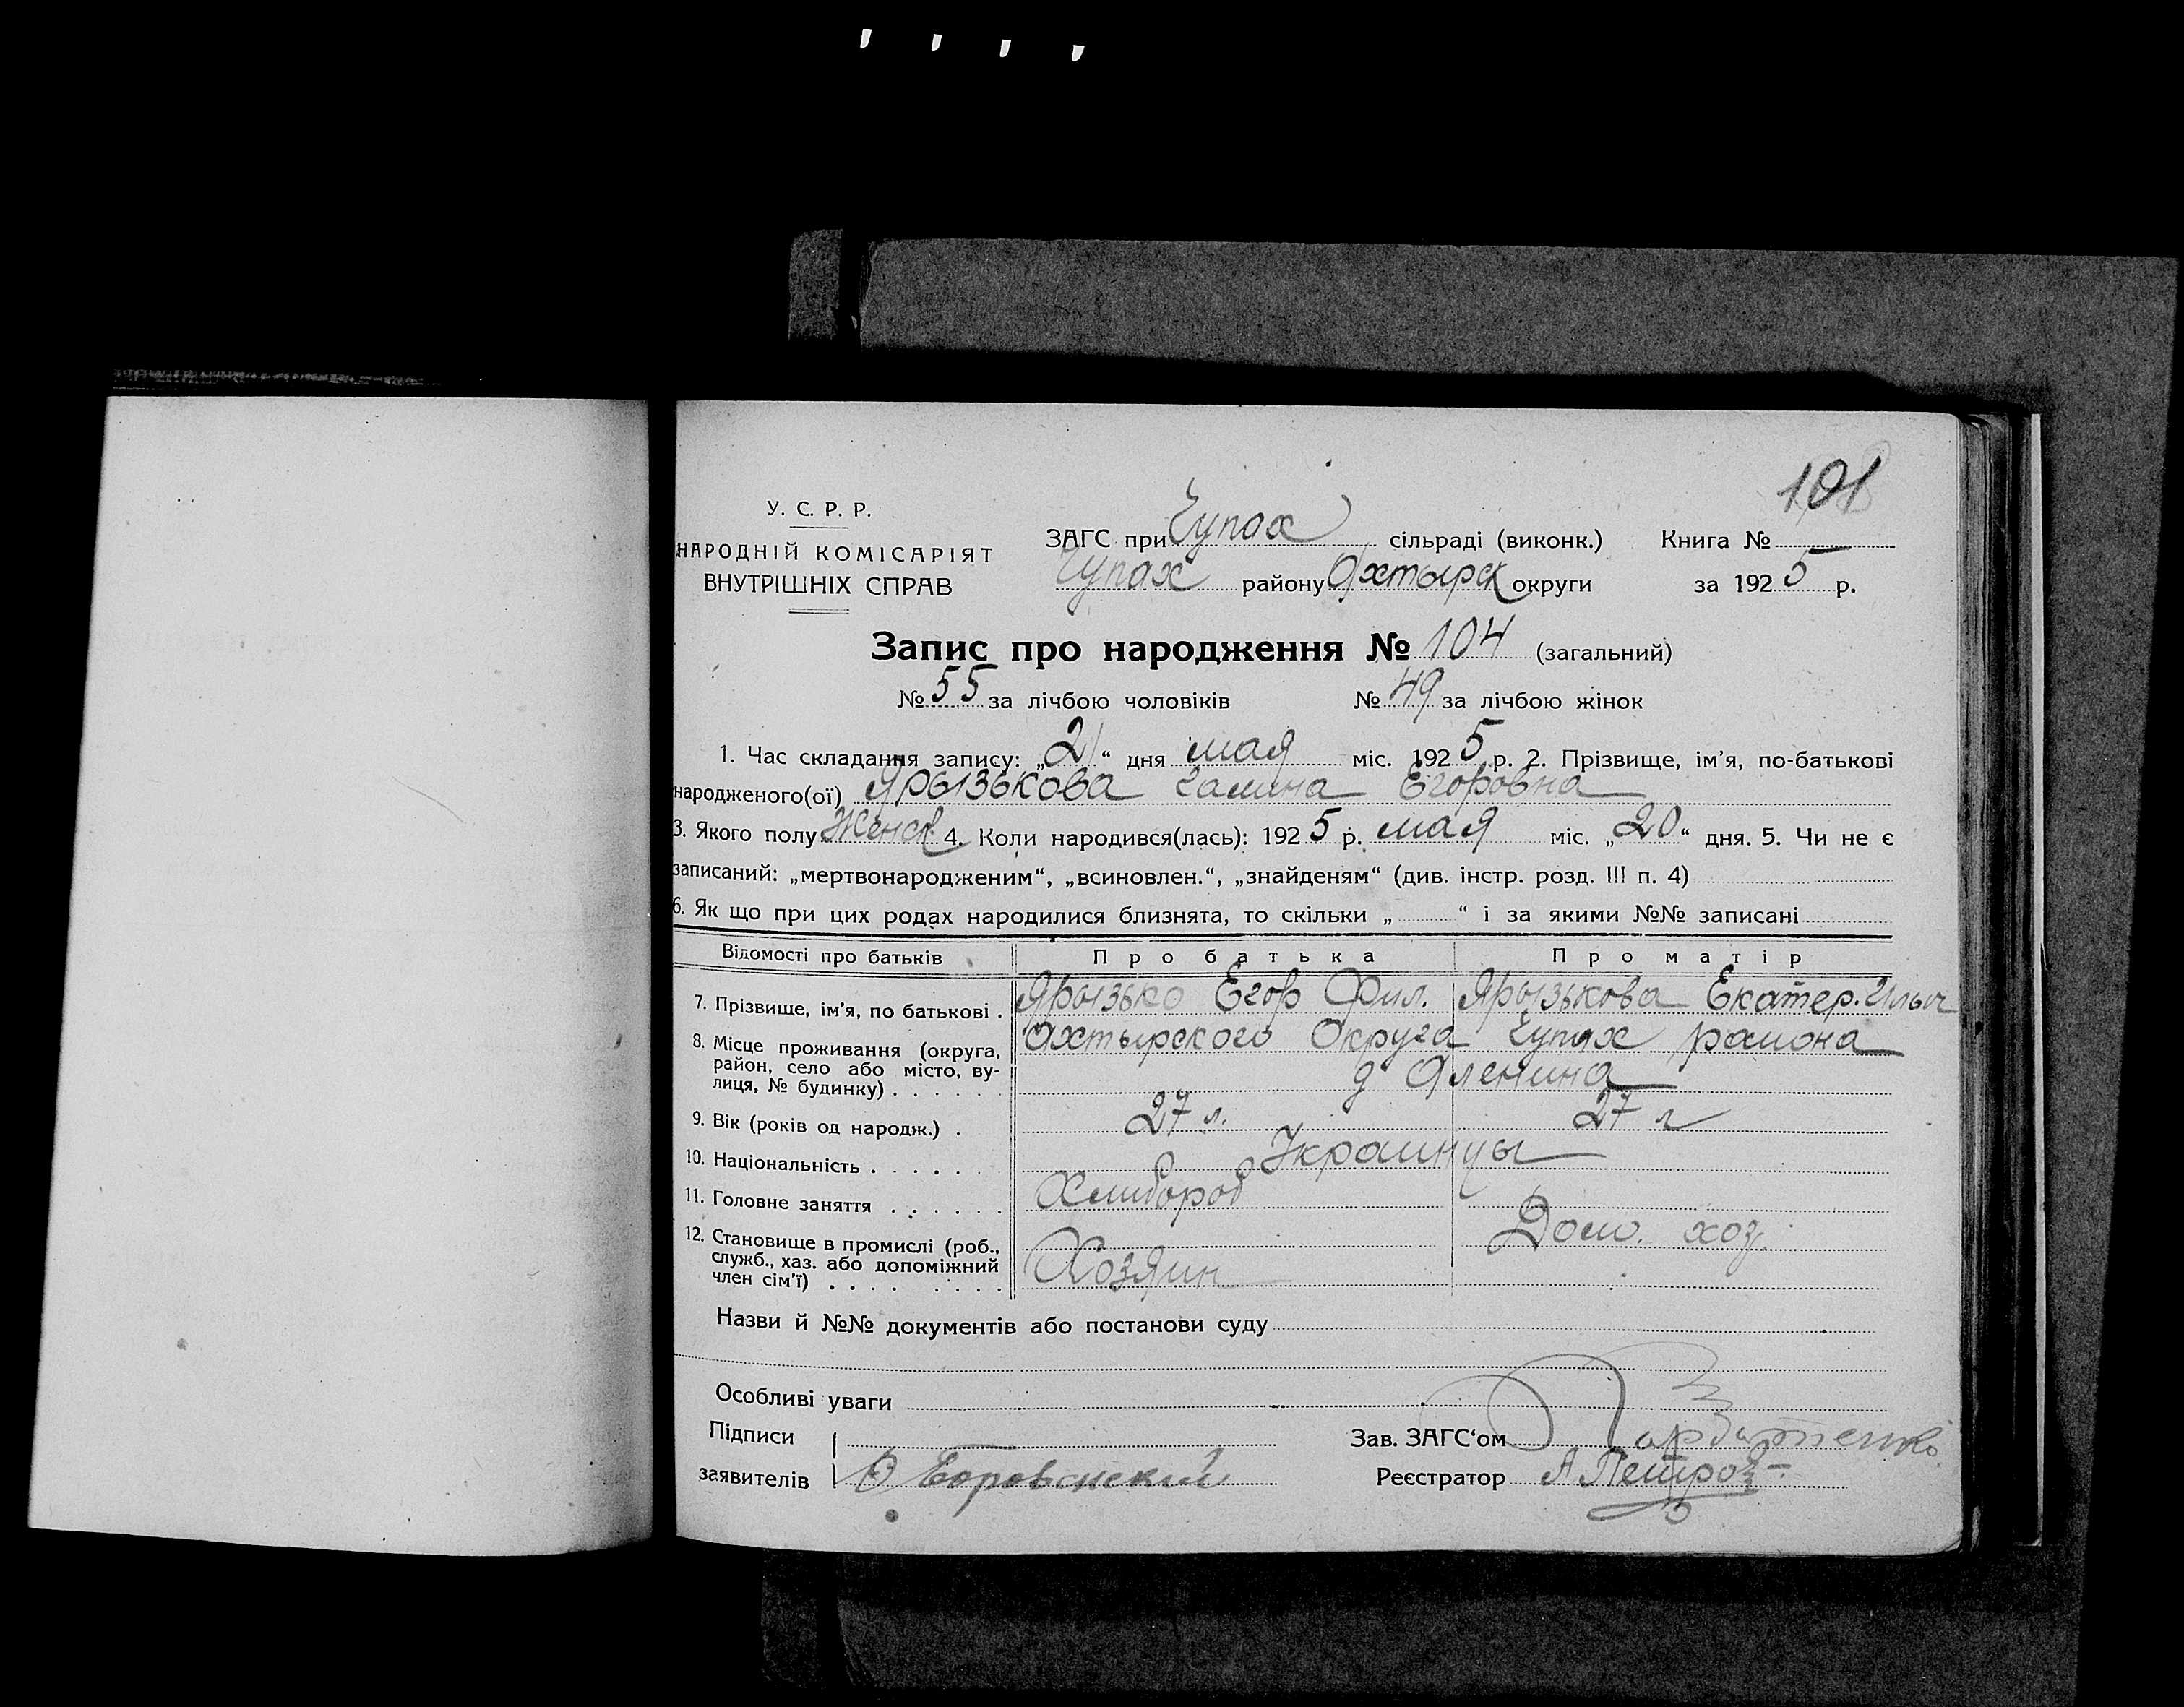 101
У. С. Р. Р.
НАРОДНІЙ КОМІСАРІЯТ
ВНУТРІШНІХ СПРАВ
ЗАГС при Чупах сільраді (виконк.) Книга №
Чупах району Охтырск округи за 1925 р.
Запис про народження № 104 (загальний)
№ 55 за лічбою чоловіків № 49 за лічбою жінок
1. Час складання запису: „21“ дня мая міс. 1925 р. 2. Прізвище, ім'я, по-батькові
народженого(ої) Ярызькова Галина Егоровна
3. Якого полу Женск 4. Коли народився(лась): 1925 р. мая міс. „20“ дня. 5. Чи не є
записаний: „мертвонародженим“, „всиновлен.“, „знайденям“ (див. інстр. розд. III п. 4)
6. Як що при цих родах народилися близнята, то скільки „ “ і за якими №№ записані
Відомості про батьків Про батька Про матір
7. Прізвище, ім'я, по батькові . Ярызько Егор Фил. Ярызькова Екатер. Ильи
8. Місце проживання (округа, Охтырского Округа Чупах района
район, село або місто, ву-
лиця, № будинку) . . . . . . д Аленина
9. Вік (років од народж.) . 27 л. 27 л
10. Національність . . . . . . Украинцы
11. Головне заняття . . . . . . Хлибороб
12. Становище в промислі (роб., Дом. хоз.
служб., хаз. або допоміжний Хозяин
член сім'ї) . . . . . . . .
Назви й №№ документів або постанови суду
Особливі уваги
Підписи Зав. ЗАГС'ом
заявителів Реєстратор А Петров